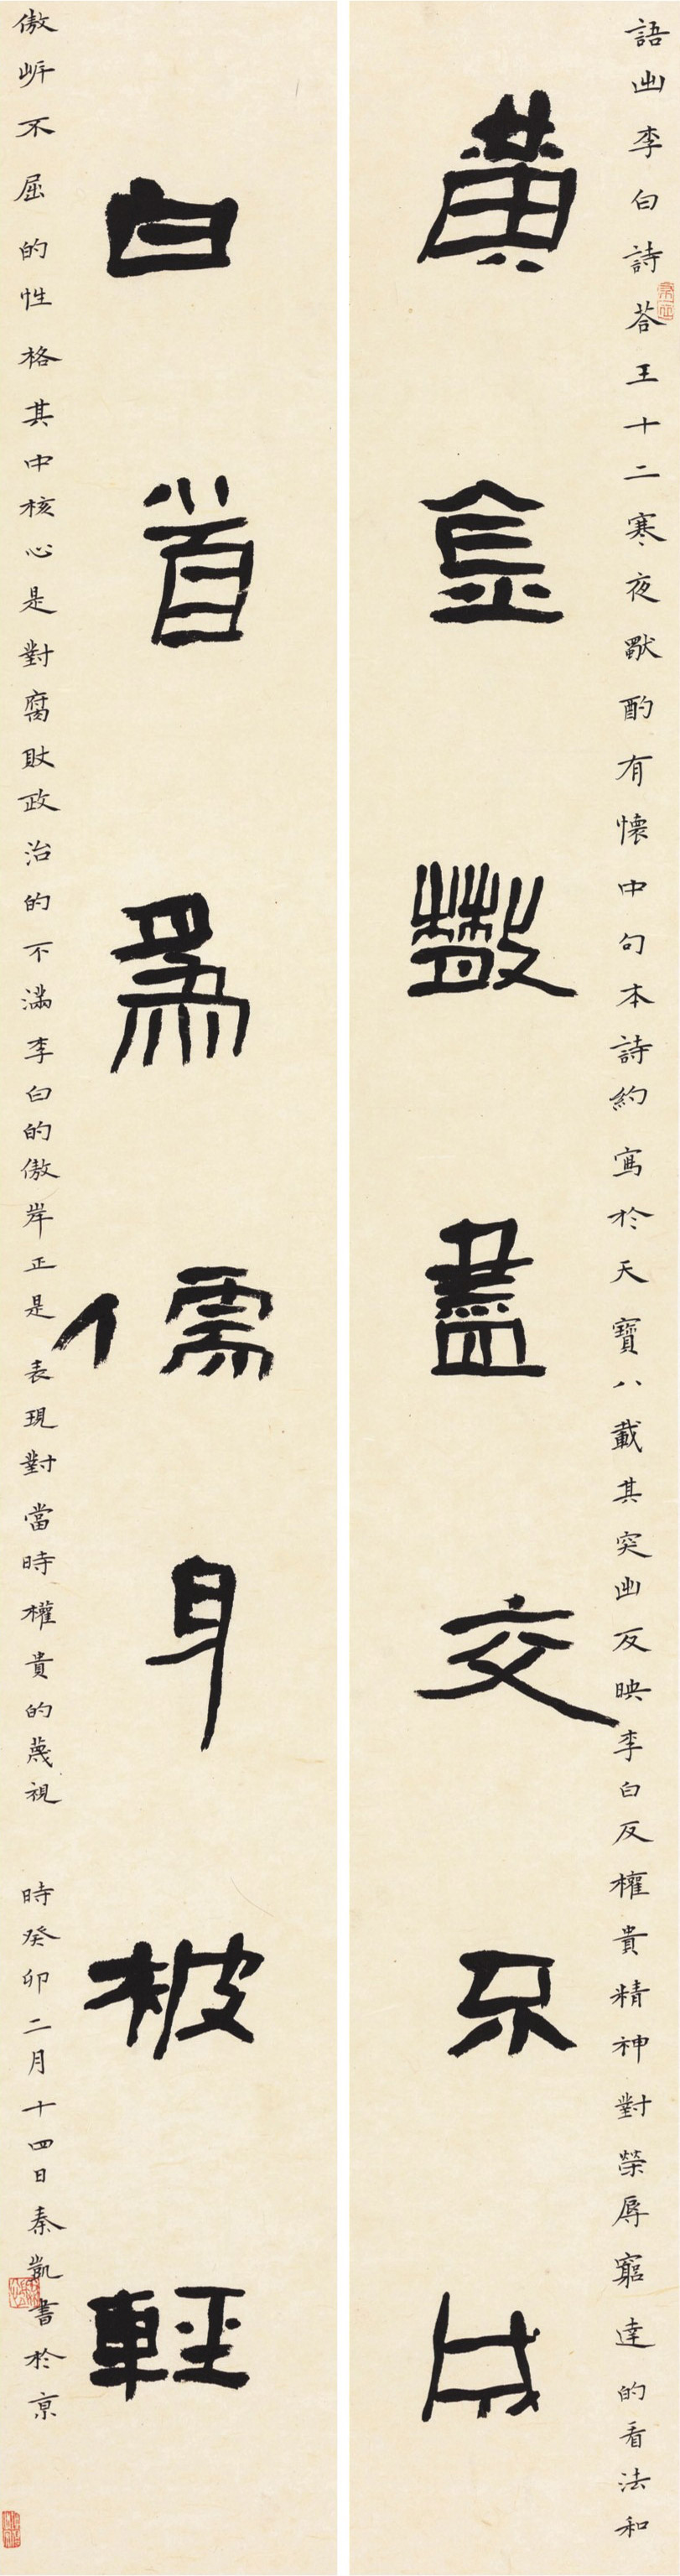 語出李白詩荅王十二寒夜獨酌有懷中句本詩約寫於天寶八載其突出反映李白反權貴精神對榮辱窮達的看法和
黃金散盡交不成
白首爲儒身被輕
傲岸不屈的性格其中核心是對腐敗政治的不滿李白的傲岸正是表現對當時權貴的蔑視 時癸卯二月十四日秦凱書於京